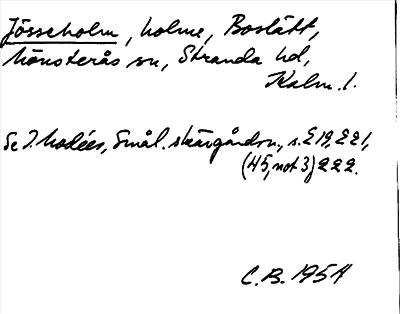 Jösseholm, holme, Boslätt,
Mönsterås sn, Stranda hd,
Kalm. l.
Se I. Modéer, Smål. skärgårdsn., s. 219, 221,
(45, not 3) 222.
C.B. 1954